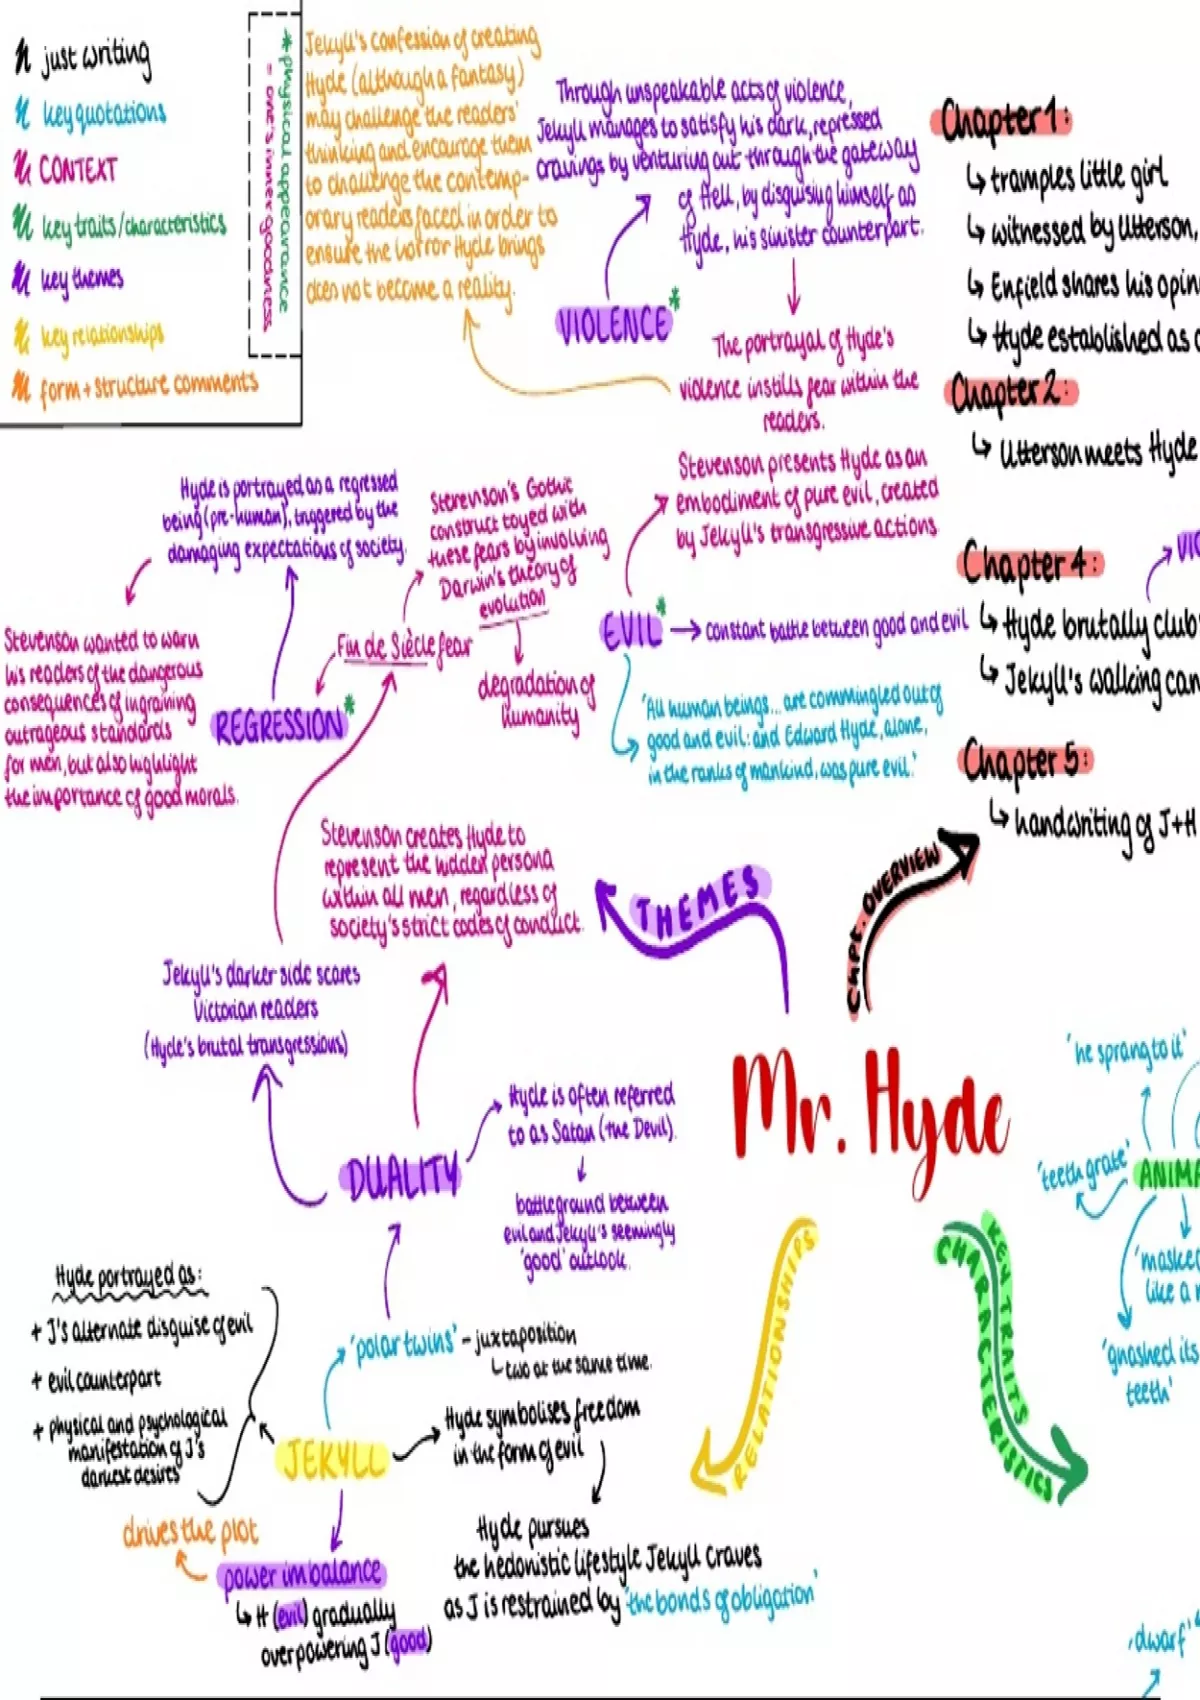 n just writing
n key quotations
n CONTEXT
n key traits/characteristics
n key themes
n key relationships
n form + structure comments
* physical appearance
= one's inner goodness
Jekyll's confession of creating
Hyde (although a fantasy)
may challenge the readers'
thinking and encourage them
to challenge the contemp-
orary readers faced in order to
ensure the horror Hyde brings
does not become a reality.
Through unspeakable acts of violence,
Jekyll manages to satisfy his dark, repressed
cravings by venturing out through the gateway
of Hell, by disguising himself as
Hyde, his sinister counterpart.
VIOLENCE *
The portrayal of Hyde's
violence instills fear within the
readers.
Stevenson presents Hyde as an
embodiment of pure evil, created
by Jekyll's transgressive actions
EVIL *
constant battle between good and evil
'All human beings... are commingled out of
good and evil: and Edward Hyde, alone,
in the ranks of mankind, was pure evil.'
Hyde is portrayed as a regressed
being (pre-human), triggered by the
damaging expectations of society.
Stevenson's Gothic
construct toyed with
these fears by involving
Darwin's theory of
evolution
degradation of
humanity
Fin de Siècle fear
REGRESSION *
Stevenson wanted to warn
his readers of the dangerous
consequences of ingraining
outrageous standards
for men, but also highlight
the importance of good morals.
Stevenson creates Hyde to
represent the hidden persona
within all men, regardless of
society's strict codes of conduct.
Jekyll's darker side scares
Victorian readers
(Hyde's brutal transgressions)
DUALITY
Hyde is often referred
to as Satan (the Devil).
battleground between
evil and Jekyll's seemingly
'good' outlook.
THEMES
Chpt. OVERVIEW
Chapter 1:
↳ tramples little girl
↳ witnessed by Utterson,
↳ Enfield shares his opin
↳ Hyde established as a
Chapter 2:
↳ Utterson meets Hyde
Chapter 4:
VIO
↳ Hyde brutally club
↳ Jekyll's walking can
Chapter 5:
↳ handwriting of J+H
Mr. Hyde
'he sprang to it'
'teeth grate'
ANIMA
'masked
like a
'gnashed its
teeth'
RELATIONSHIPS
KEY TRAITS
CHARACTERISTICS
Hyde portrayed as:
+ J's alternate disguise of evil
+ evil counterpart
+ physical and psychological
manifestation of J's
darkest desires
'polar twins' - juxtaposition
↳ two at the same time.
JEKYLL
Hyde symbolises freedom
in the form of evil
Hyde pursues
the hedonistic lifestyle Jekyll craves
as J is restrained by 'the bonds of obligation'
drives the plot
power imbalance
↳ H (evil) gradually
overpowering J (good)
'dwarf'